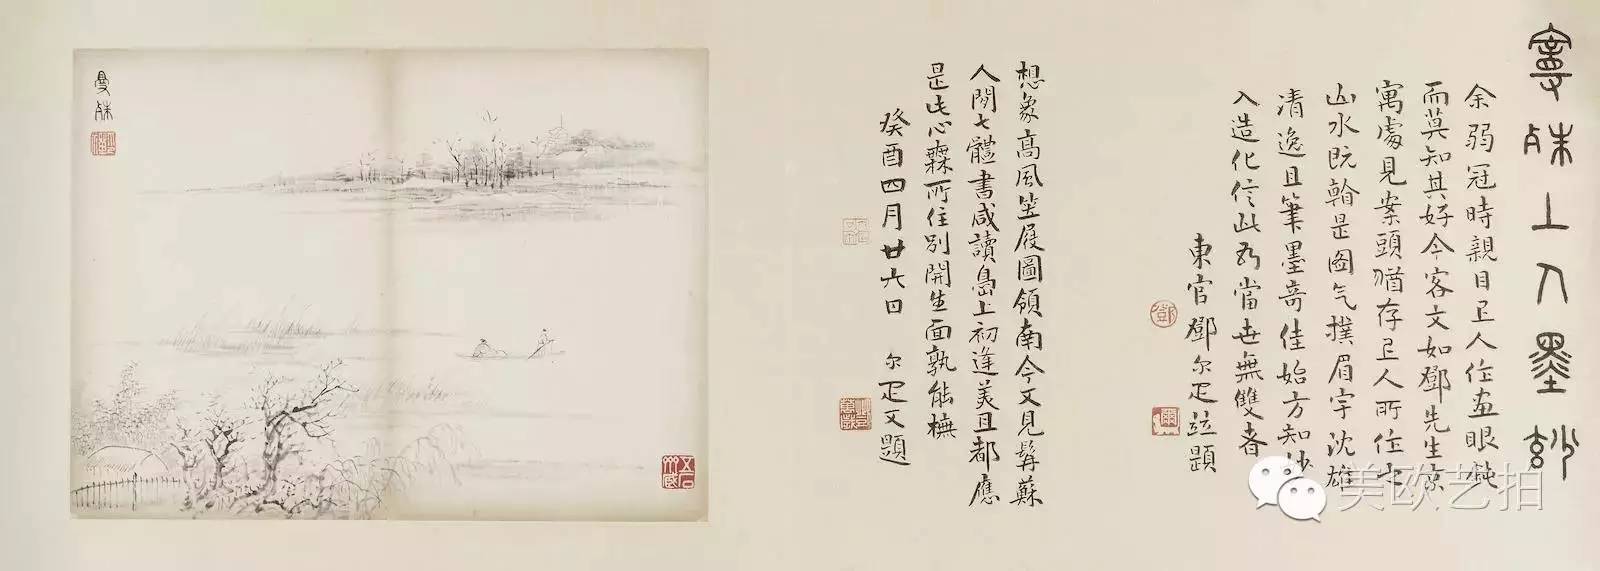 曼殊上人墨妙
余弱冠時親目上人作畫眼鈍
而莫知其好今客文如鄧先生京
寓處見案頭猶存上人所作
山水既是图气撲眉宇沈雄
清逸且筆墨奇佳始方知
入造化信此當世無雙者
東官鄧尔疋並題
想象高風笠屐圖領南今又見髯蘇
人間七體書咸讀島上初逢美且都應
是此心無所住別開生面孰能橅
癸酉四月廿六日 尔疋又題
曼殊
美欧艺拍